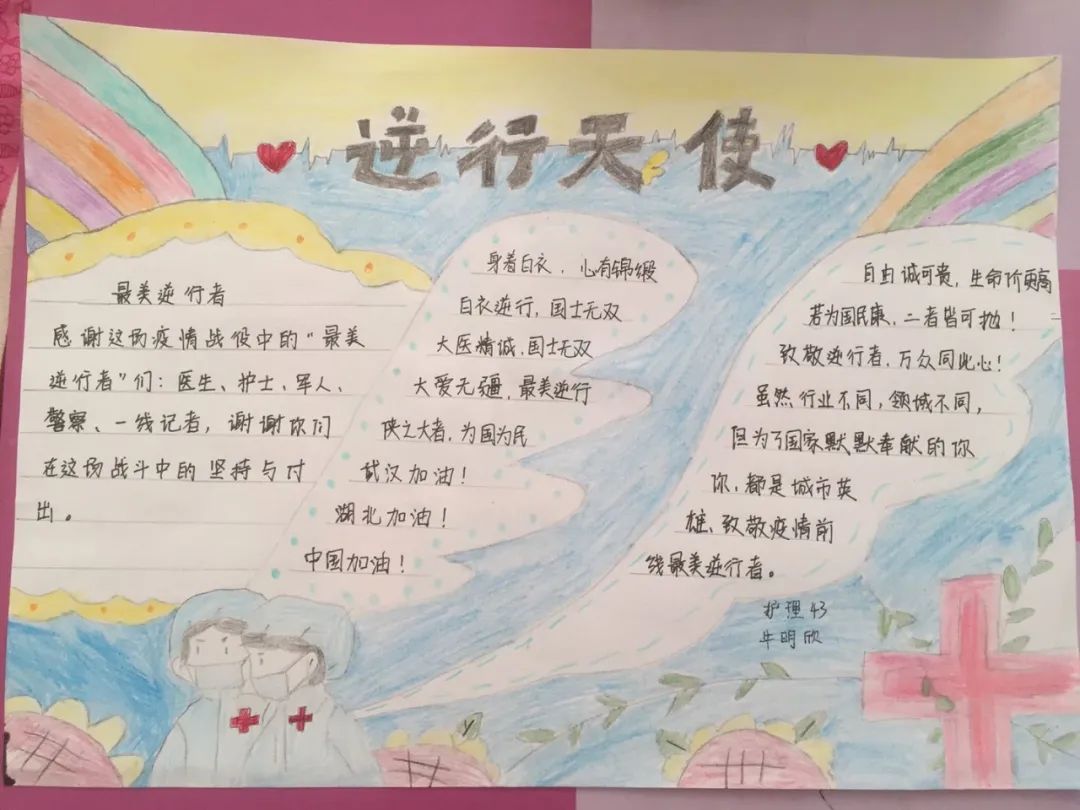 逆行天使
最美逆行者
感谢这场疫情战役中的“最美
逆行者”们：医生、护士、军人、
警察、一线记者，谢谢你们
在这场战斗中的坚持与付
出。
身着白衣，心有锦缎
白衣逆行，国士无双
大医精诚，国士无双
大爱无疆，最美逆行
侠之大者，为国为民
武汉加油！
湖北加油！
中国加油！
自由诚可贵，生命价更高
若为国民康，二者皆可抛！
致敬逆行者，万众同此心！
虽然行业不同，领域不同，
但为了国家默默奉献的你
你，都是城市英
雄、致敬疫情前
线最美逆行者。
护理43
牛明欣